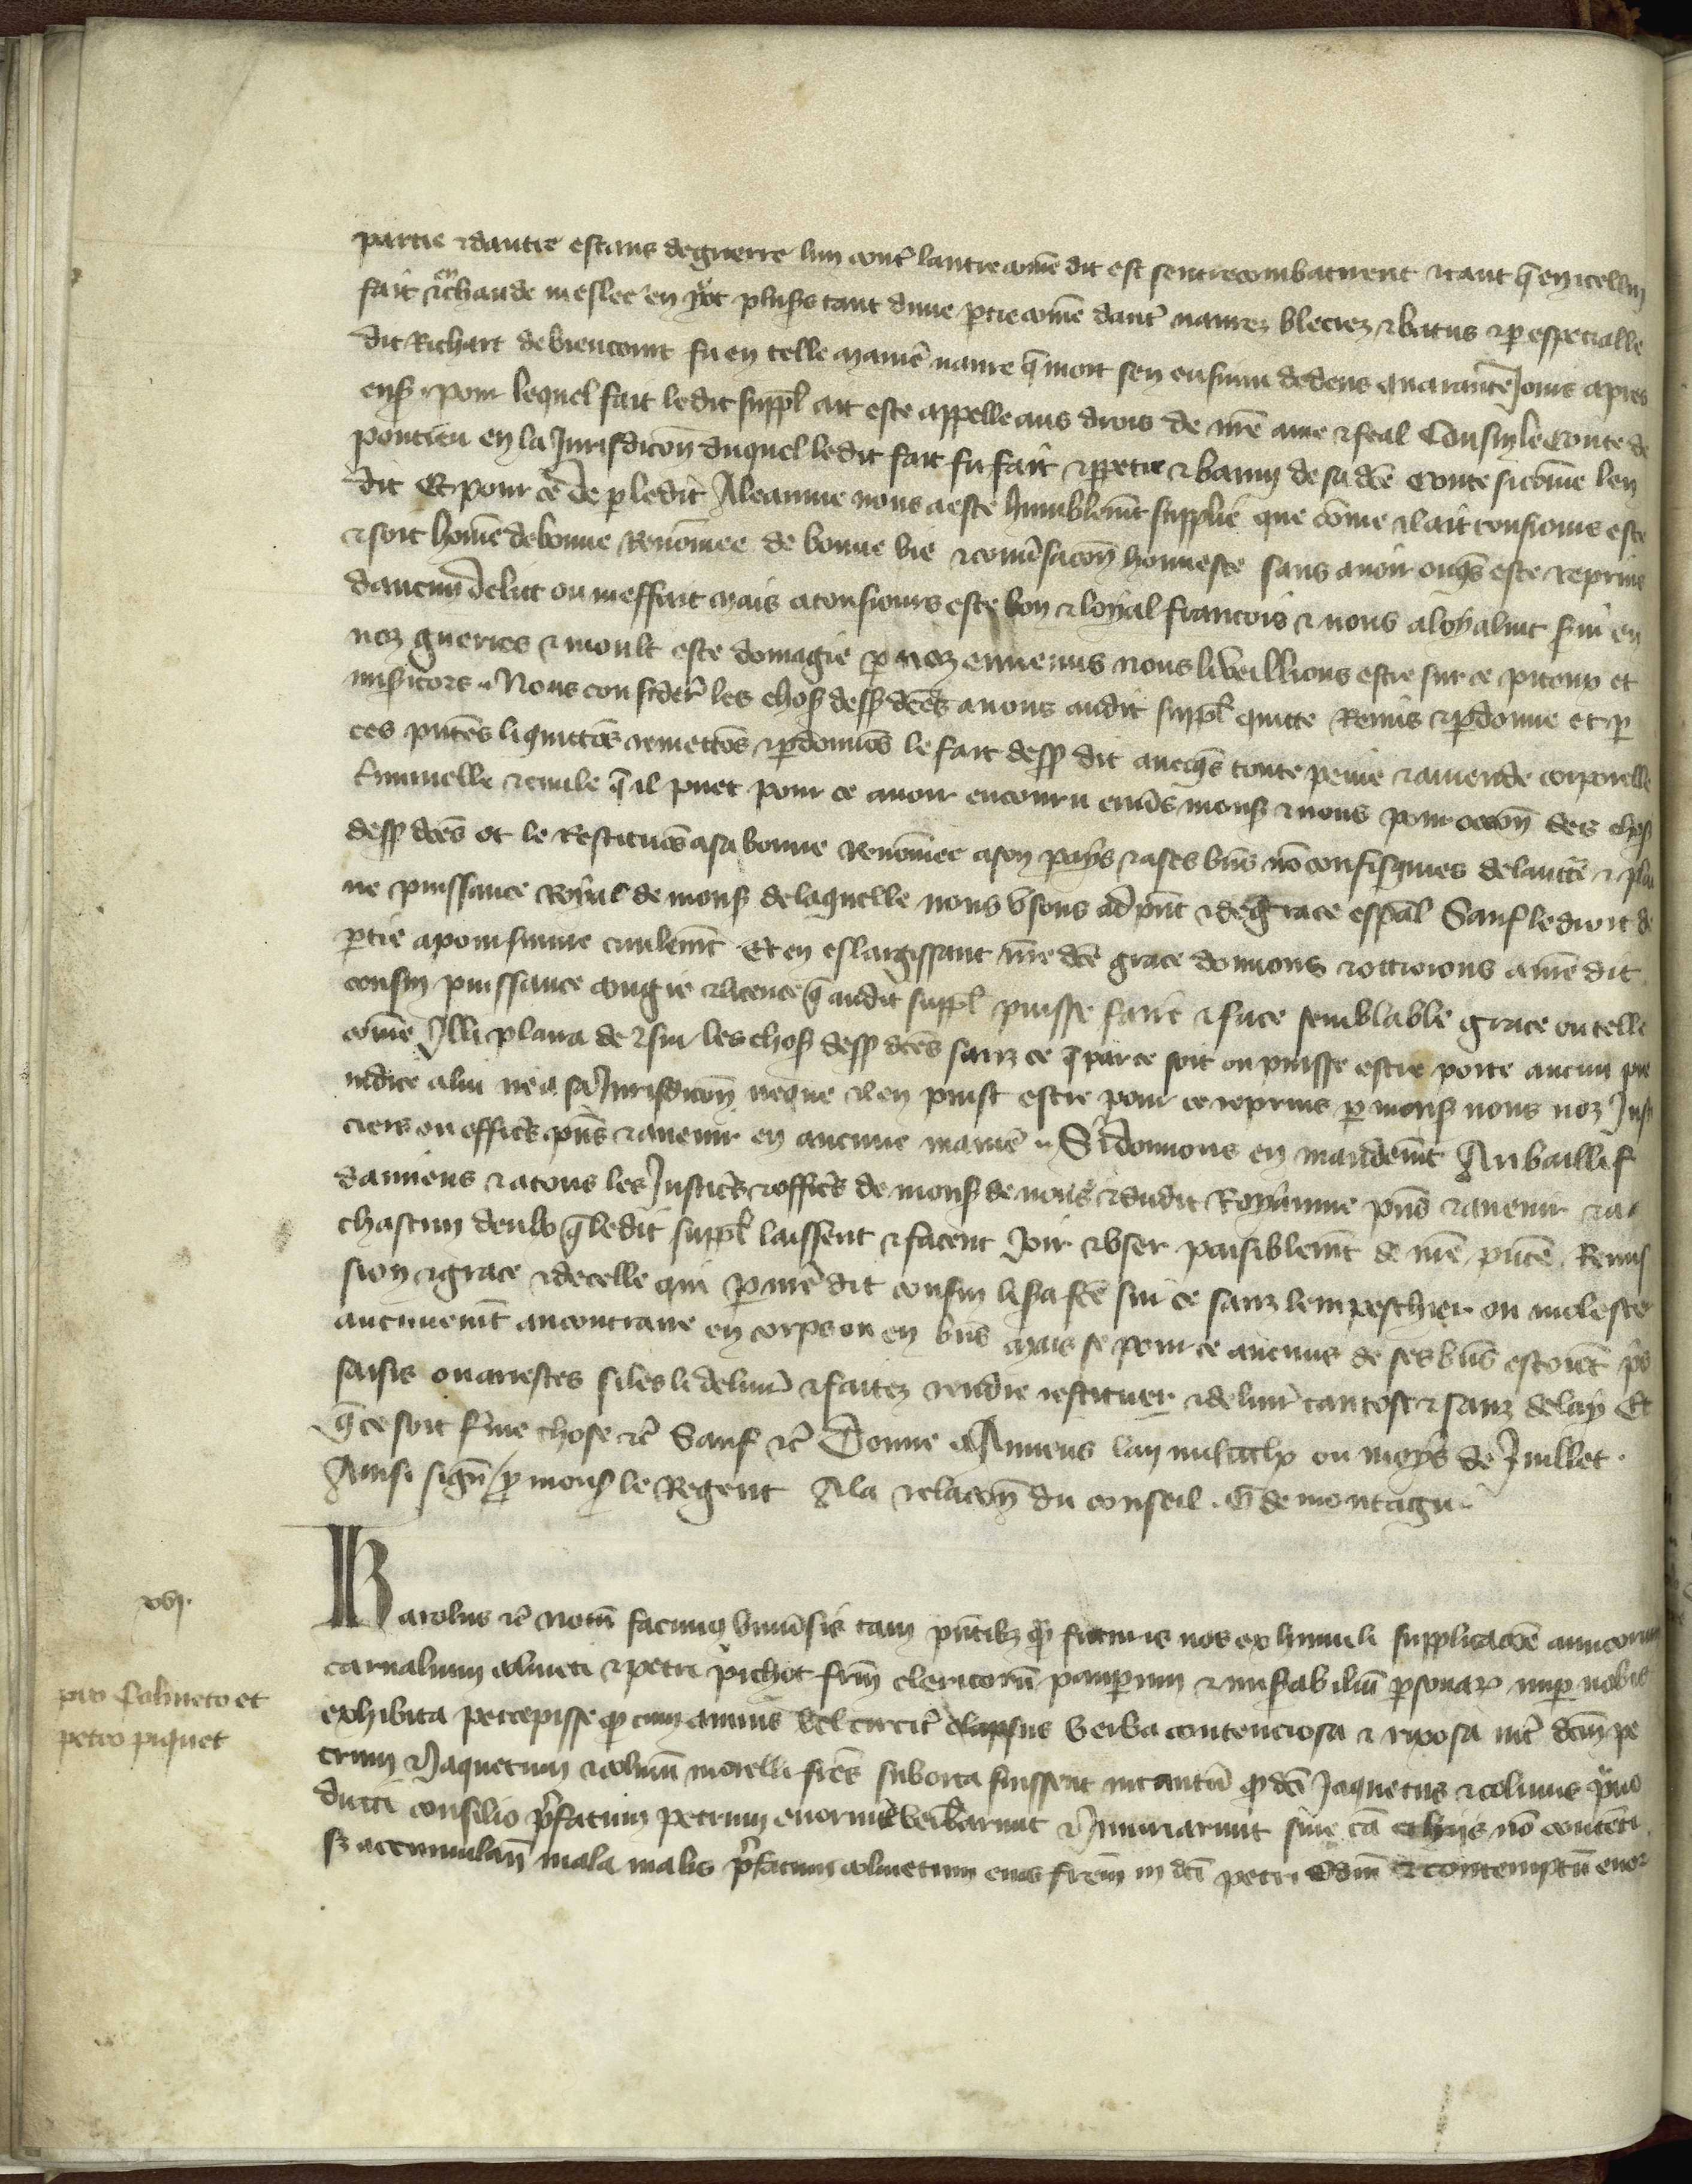 partie & dautre estans de guerre lun cont' lautre com̄e dit est sentrecombatirent & tant q̄ en icellui
fait & en chaude meslee en y ot plus's tant dune p̄tie com̄e daut' navrez bleciez & batus & p̄ especialle
dit Richart de biencourt fu en telle manie' navre q̄ mort sen ensuiui dedens quarante Jours apres
ens' & pour lequel fait ledit suppl' ait este appelle aus drois de nr̄e ame & feal Cousin le Conte de
pontieu en la Jurisdicōn duquel ledit fait fu fait & & banny de sa dc̄e Conte sicom̄e len
dit Et pour ce de p̄ ledit Aleaume nous a este humblem̄t supplie que com̄e il ait tousiours este
& soit hom̄e de bonne Renom̄ee de bonne vie & conv'sacōn honneste sans avoir onq̄s este reprins
daucun delict ou meffait mais a tousiours este bon & loyal francois & nous a loyalm̄t s'ui en
noz guerres & moult este domagie p̄ noz ennemis nous li veillions estre sur ce piteux et
mis'icors .. Nous consider' les chos' dess' dc̄es avons audit suppl' quitte Remis & p̄donne et p̄
ces pn̄tes li quittōs remettōs & p̄donnōs le fait dess' dit avecq̄s toute peine & amende corporelle
c'iminelle & civile q̄ il puet pour ce avoir encouru env's mons' & nous pour occōn des chos'
dess' dc̄es et le Restituōs a sa bonne Renom̄ee a son pays & a ses bn̄s nō confisquies de lauct'e & plai
ne puissance Roy'al de mons' de laquelle nous usons ad p̄nt & de grace esp̄al Sauf le droit de
p̄tie a poursuivre civilem̄t Et en eslargissant nr̄e dc̄e grace donnons & ottroions a nr̄e dit
cousin puissance congie & licence q̄ audit suppl' puisse faire & face semblable grace ou telle
com̄e Il li plaira de & sur les chos' dess' dc̄es sanz ce q̄ par ce soit ou puisse estre porte aucun pre
iudice a lui ne a sa Jurisdicōn ne que il en puist estre pour ce reprins p̄ mons' nous noz Justi
ciers ou offic's p̄ns & avenir en aucune manie' .. Si donnons en mandem̄t Au baillif
damiens & a tous les Justic's & offic's de mons' de nous & dudit Royaume p̄ns & avenir & a
chascun deulx q̄ ledit suppl' laissent & facent Joir & user paisiblem̄t de nr̄e pn̄te Remis
sion & grace & de celle qui p̄ nr̄e dit cousin li s'a fc̄e sur ce sanz lempeschier ou molester
aucunem̄t au contraire en corps ou en bn̄s mais se pour ce aucuns de ses bn̄s estoiēt p'ns
saisis ou arrestes si les li delivr' & faitez rendre restituer & delivr' tantost & sanz delay Et
q̄ ce soit f'me chose &c' Sauf &c' Donne a Amiens lan mil ccclx ou moys de Juillet .
Ainsi sign̄ p̄ mons' le Regent A la relacōn du conseil . G de montagu ..
xvj.
pro Colineto et
petro piquet
Karolus &c' notū facimus univ'sis tam pn̄tib; q̄ futuris nos ex humili supplicacōe amicorum
carnalium colineti & petri pichot fr̄m clericorū paup̄um & mis'abiliū p̄sonar' nup̄ nobis
exhibita percepisse q̄ cum annus vel circit' elapsus verba contenciosa & rixosa int' dc̄m pe
trum & Jaquetum & colinū morelli fr̄es suborta fuissent in tantū q̄ dc̄i Jaquetus & colinus p̄vo
ducti consilio p̄fatum petrum enormit' verbarunt & Iniuriarunt sine cā et hiis nō contēti
s; accumulan̄ mala malis p̄fatum colinetum eius fr̄em in dc̄i petri odiū & contemptū enor